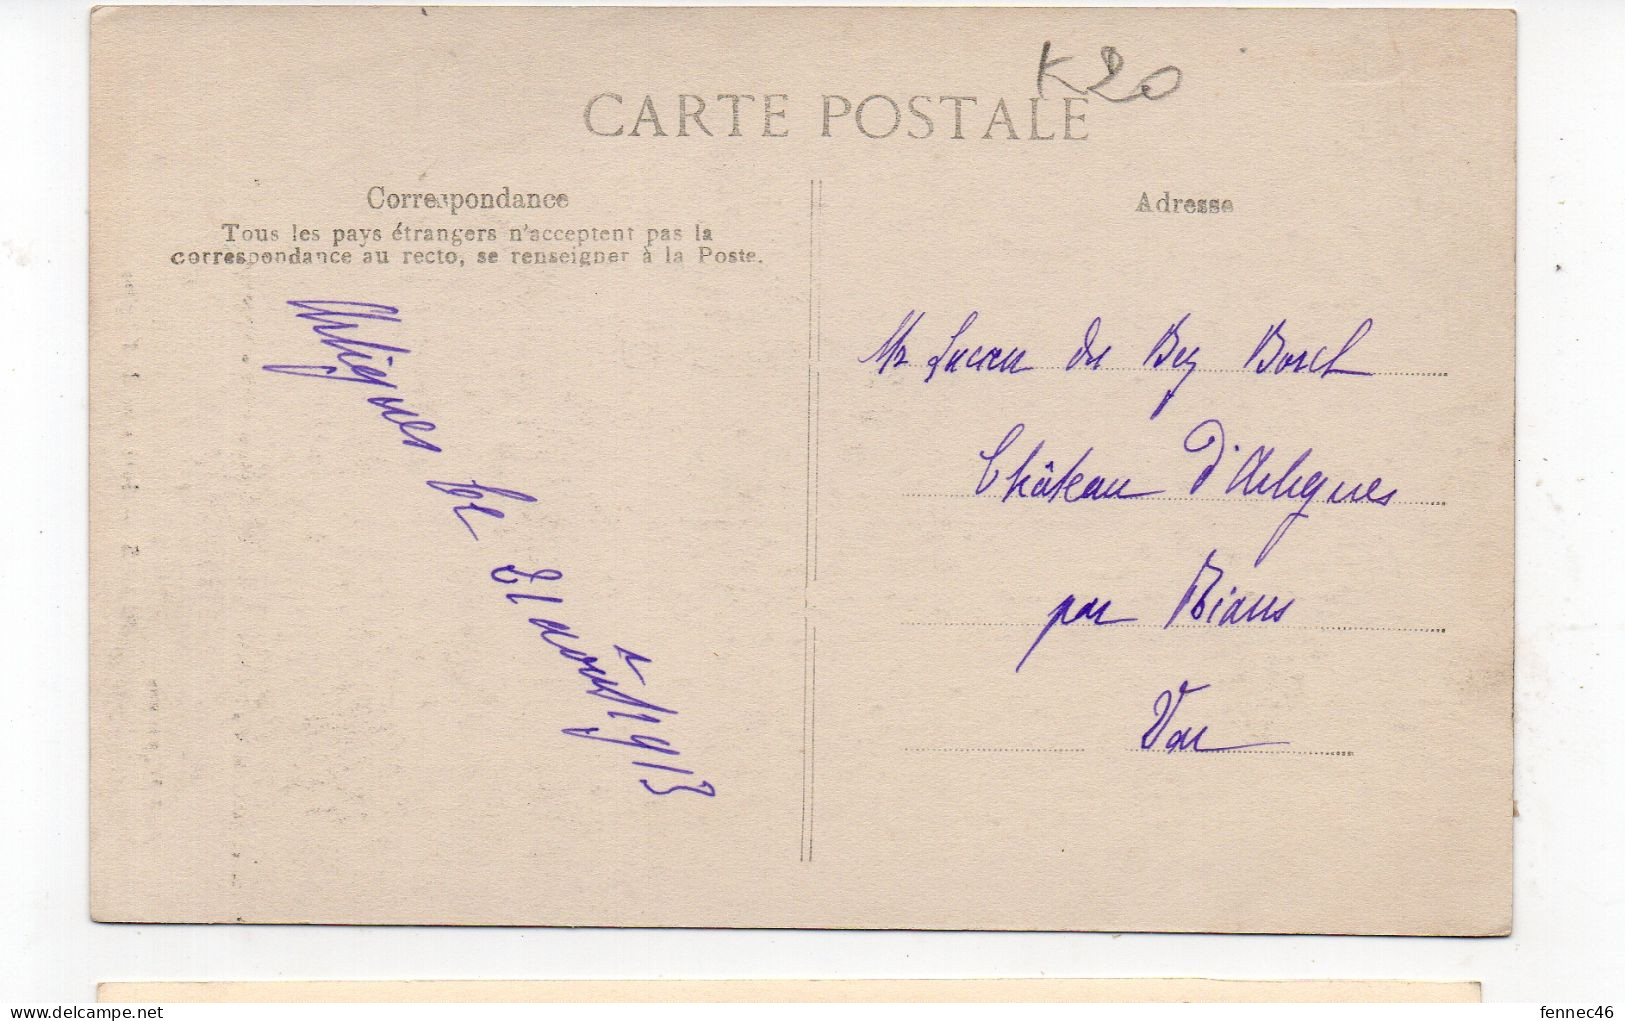 K20
CARTE POSTALE
Correspondance
Tous les pays étrangers n'acceptent pas la
correspondance au recto, se renseigner à la Poste.
Artigues le 31 août 1913
Adresse
Mr Lucien du Bey Borel
Château d'Artigues
par Rians
Var
delcampe.net
fennec46